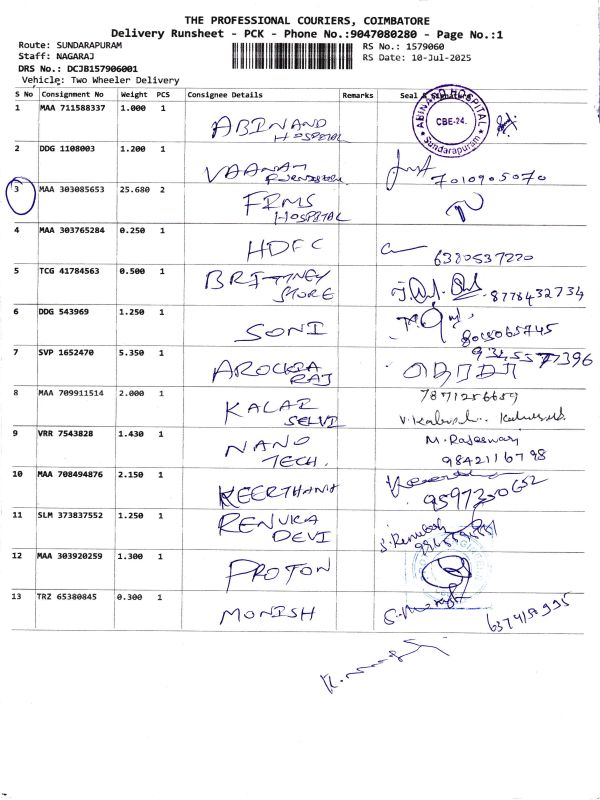 THE PROFESSIONAL COURIERS, COIMBATORE
Delivery Runsheet - PCK - Phone No.:9047080280 - Page No.:1
Route: SUNDARAPURAM
Staff: NAGARAJ
DRS No.: DCJB157906001
Vehicle: Two Wheeler Delivery
RS No.: 1579060
RS Date: 10-Jul-2025
S No Consignment No Weight PCS Consignee Details Remarks Seal &
ABINAND HOSPITAL
CBE-24.
Sundarapuram
1 MAA 711588337 1.000 1 ABINAND
HOSPITAL
2 DDG 1108003 1.200 1 VAANAM
7010905070
3 MAA 303085653 25.680 2 FRMS
HOSPITAL
4 MAA 303765284 0.250 1 HDFC
6380537220
5 TCG 41784563 0.500 1 BRITTNEY
STORE 8778432734
6 DDG 543969 1.250 1 SONI
8015065745
7 SVP 1652470 5.350 1 AROCKIA
RAJ
8 MAA 709911514 2.000 1 KALAI
SELVI 7871256657
9 VRR 7543828 1.430 1 NANO
TECH. M. Rajeswari
9842116798
10 MAA 708494876 2.150 1 KEERTHANA
9597350652
11 SLM 373837552 1.250 1 RENUKA
DEVI
12 MAA 303920259 1.300 1 PROTON
13 TRZ 65380845 0.300 1 MONISH